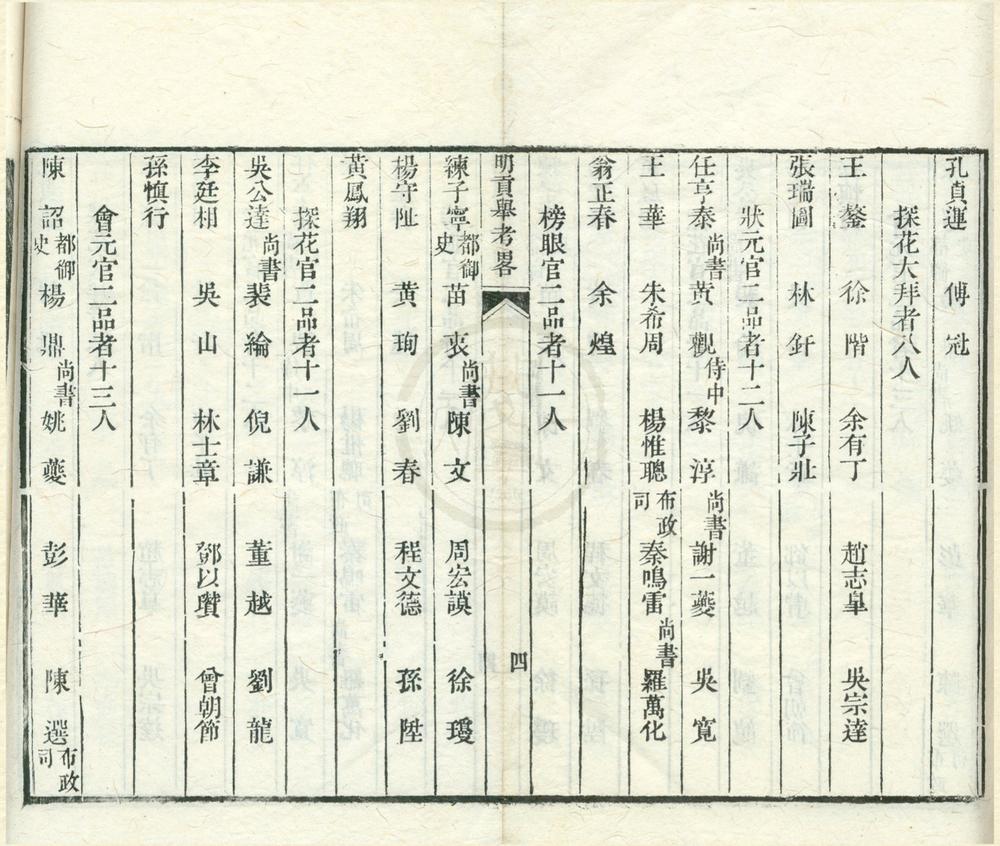 孔貞運 傅冠
探花大拜者八人
王鏊 徐階 余有丁 趙志臯 吳宗達
張瑞圖 林釬 陳子壯
狀元官二品者十二人
任亨泰尚書 黃觀侍中 黎淳尚書 謝一夔 吳寬
王華 朱希周 楊惟聰布政司 秦鳴雷尚書 羅萬化
翁正春 余煌
榜眼官二品者十一人
明貢舉考畧 四
練子寧都御史 苗衷尚書 陳文 周宏謨 徐瓊
楊守阯 黃珣 劉春 程文德 孫陞
黃鳳翔
探花官二品者十一人
吳公達尚書 裴綸 倪謙 董越 劉龍
李廷相 吳山 林士章 鄧以瓚 曾朝節
孫慎行
會元官二品者十三人
陳詔都御史 楊鼎尚書 姚夔 彭華 陳選布政司